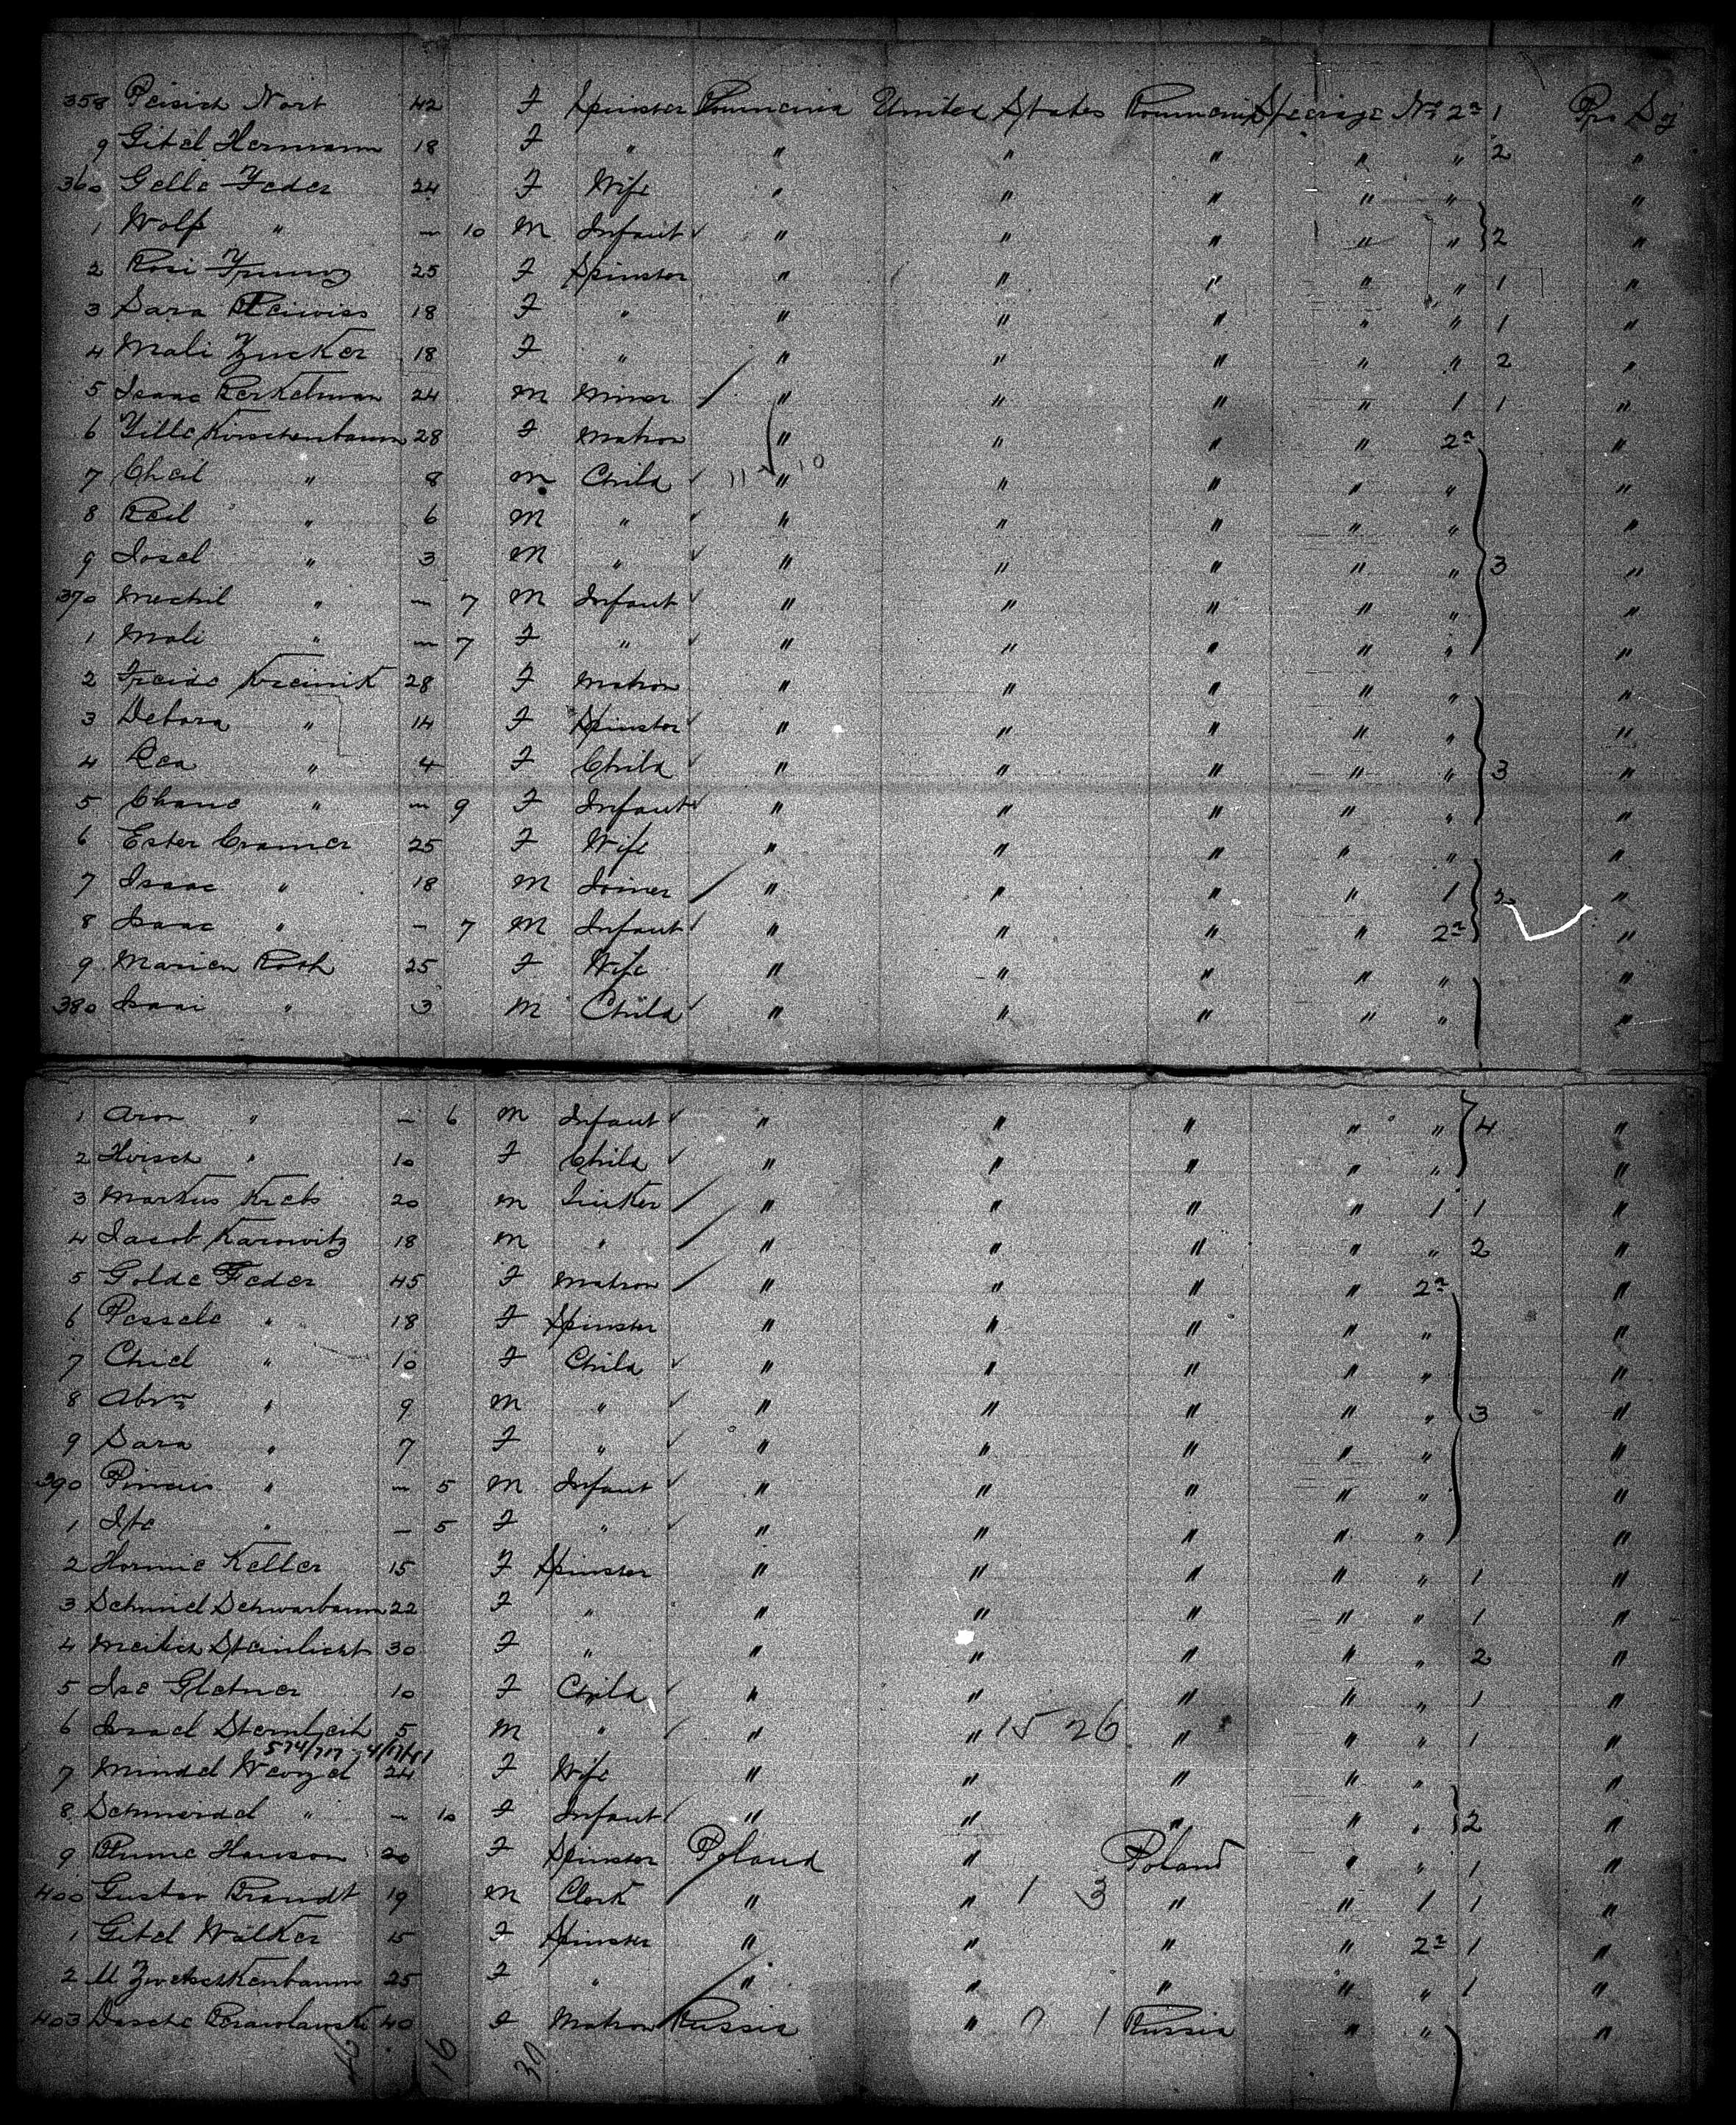 358 Peisich Nort 42 F Spinster Roumania United States Roumania Steerage No 2a 1 Pro Sg
9 Gitel Hermann 18 F " " " " " " 2 "
360 Gelle Feder 24 F Wife " " " " " "
1 Wolf " — 10 M Infant " " " " " 2 "
2 Rosi 25 F Spinster " " " " " 1 "
3 Sara 18 F " " " " " " 1 "
4 Mali Zucker 18 F " " " " " " 2 "
5 Isaac Berkelman 24 M Miner " " " " 1 1 "
6 Zille Kirschenbaum 28 F Matron " " " " 2a "
7 Cheil " 8 M Child 11 10 " " " " " "
8 Reil " 6 M " " " " " " "
9 Josel " 3 M " " " " " " 3 "
370 Mechil " — 7 M Infant " " " " " "
1 Mali " — 7 F " " " " " " "
2 Freide Kreinik 28 F Matron " " " " " "
3 Debora " 14 F Spinster " " " " " "
4 Rea " 4 F Child " " " " " 3 "
5 Chane " — 9 F Infant " " " " " "
6 Ester Cramer 25 F Wife " " " " " "
7 Isaac " 18 M Joiner " " " " 1 2 "
8 Isaac " — 7 M Infant " " " " 2a "
9 Marien Roth 25 F Wife " " " " " "
380 Isaai " 3 M Child " " " " " "
1 Aron " — 6 M Infant " " " " " 4 "
2 Hirsch " 10 F Child " " " " " "
3 Markus Krebs 20 M Tinker " " " " 1 1 "
4 Jacob Karowitz 18 M " " " " " " 2 "
5 Golde Feder 45 F Matron " " " " 2a "
6 Pessele " 18 F Spinster " " " " " "
7 Chiel " 10 F Child " " " " " "
8 Abrm " 9 M " " " " " " 3 "
9 Sara " 7 F " " " " " " "
390 Pincus " — 5 M Infant " " " " " "
1 Ite " — 5 F " " " " " " "
2 Hormie Keller 15 F Spinster " " " " " 1 "
3 Schmiel Schwarbaum 22 F " " " " " " 1 "
4 Meilich Steinlicht 30 F " " " " " " 2 "
5 Ise Gletner 10 F Child " " " " " 1 "
6 Israel 5 M " " " 15 26 " " " 1 "
574/717 - 4/17/
7 Mindel 24 F Wife " " " " " "
8 Schmeidel " — 10 F Infant " " " " " 2 "
9 Hanson 20 F Spinster Poland " Poland " " 1 "
400 Gustav Brandt 19 M Clerk " " 1 3 " " 1 1 "
1 Gitel Walker 15 F Spinster " " " " 2a 1 "
2 M Zwetschkenbaum 25 F " " " " " " 1 "
403 Dasche 40 F Matron Russia " 0 1 Russia " " "
46 16 30